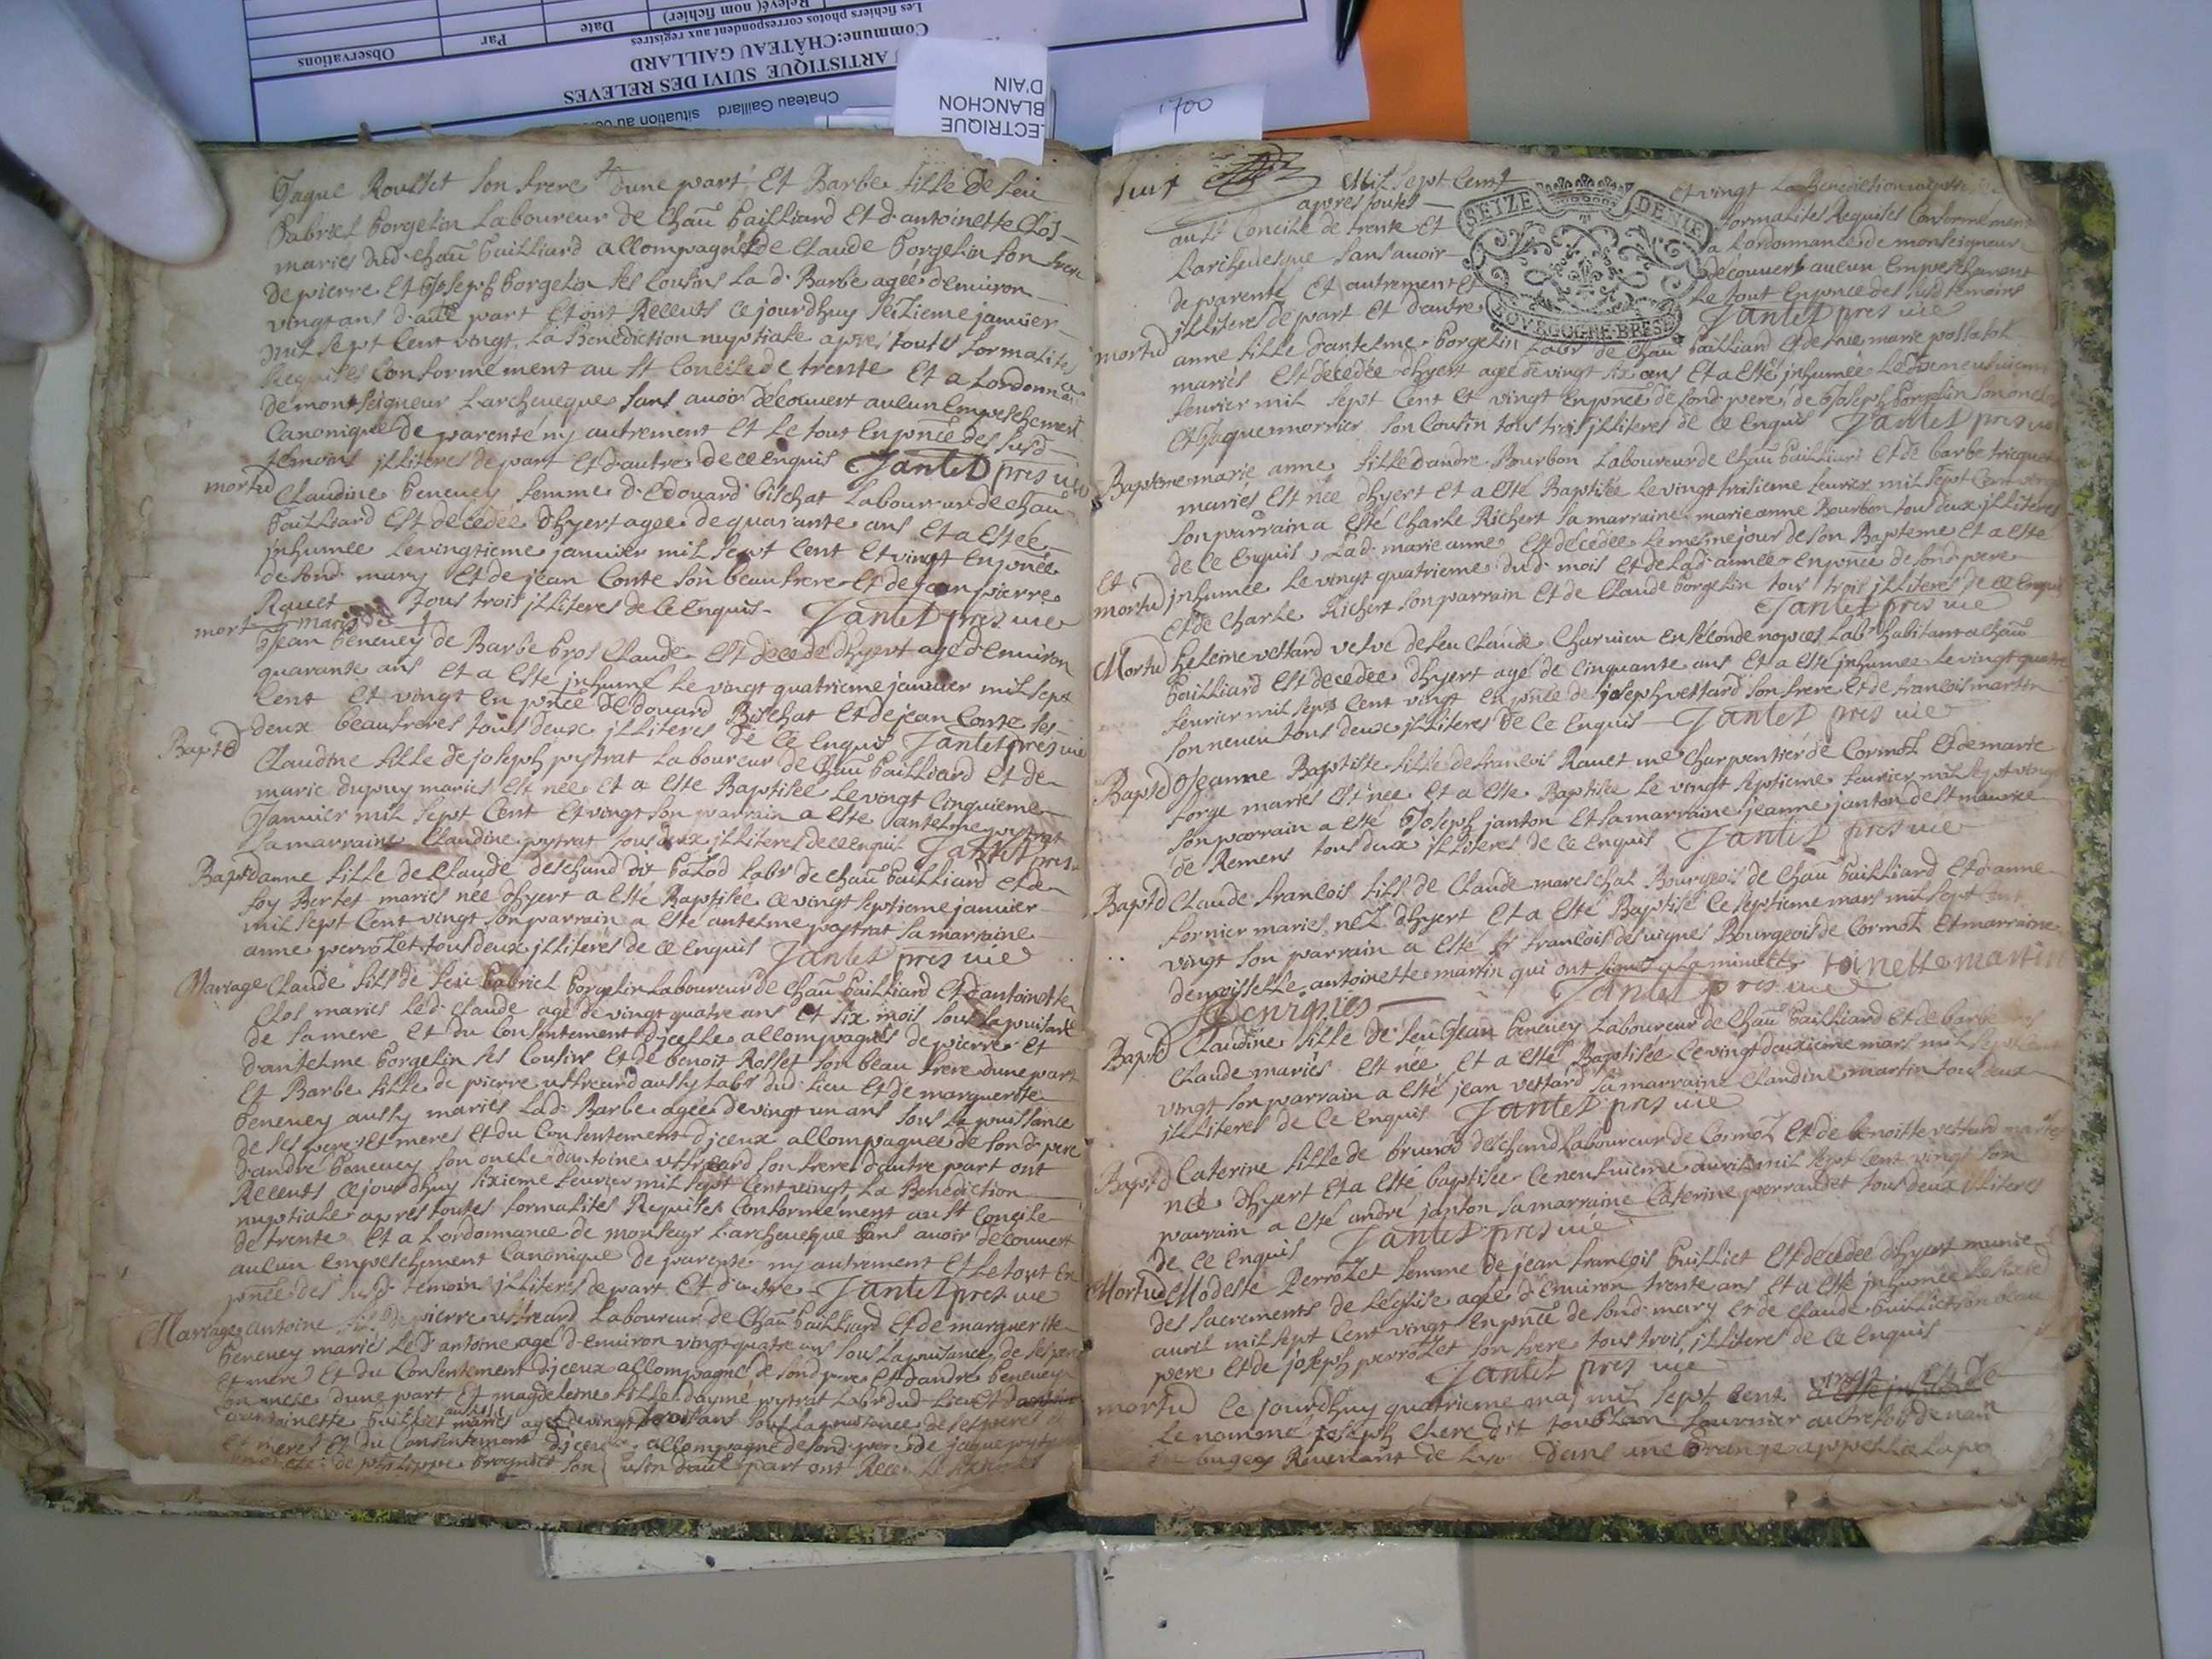 Observations
Par
Date
Relevé( nom fichier)
Les fichiers photos correspondent aux registres
Commune:CHÂTEAU GAILLARD
ARTISTIQUE SUIVI DES RELEVES
Chateau Gaillard situation au
LECTRIQUE
BLANCHON
D'AIN
1700
Jaque Rousset son frere dune part Et Barbe fille de feu
Gabriel Gorgelin Laboureur de Chau Gailliard Et d'antoinette Clos
mariés dud. Chau Gailliard accompagnée de Claude Gorgelin son frere
de pierre Et Joseph Gorgelin ses Cousins La d. Barbe agée d'environ
vingt ans d'autre part Et ont Receuts ce jourdhuy seizieme janvier
mil sept Cent vingt La Benediction nuptiale aprés toutes formalités
Requises Conformement au St Concile de trente Et a Lordonnance
de monseigneur Larcheveque sans avoir découvert aucun Empeschement
Canonique de parenté ny autrement Et Le tout En pnce des susd.
temoins jlliteres de part Et d'autre de ce Enquis Jantet pres vic
mortd Claudine Beneney femme d'Edouard Bischat Laboureur de Chau
Gailliard Est décédée d'hyert agée de quarante ans Et a Esté
jnhumée Le vingtieme janvier mil sept Cent Et vingt En pnce
de sond. mary Et de jean Conte son beau frere Et de jean pierre
Ravet tous trois jlliteres de ce Enquis Jantet pres vic
mort Jean Beneney mary de Barbe Gros Claude Est décédé d'hyert agé d'Environ
quarante ans Et a Esté jnhumé Le vingt quatrieme janvier mil sept
Cent Et vingt En pnce d'Edouard Bischat Et de jean Conte ses
deux beaufreres tous deux jlliteres de ce Enquis Jantet pres vic
Baptd Claudine fille de joseph pytrat Laboureur de Chau Gailliard Et de
marie dupuy mariés Est née Et a Esté Baptisée Le vingt Cinquieme
Janvier mil sept Cent Et vingt son parrain a Esté antelme pytrat
sa marraine Claudine pytrat tous deux jlliteres de ce enquis Jantet pres
Baptd anne fille de Claude deschand dit Labr de Chau Gailliard Et de
foy Bertet mariés née d'hyert a Esté Baptisée Ce vingt septieme janvier
mil sept Cent vingt son parrain a Esté antelme pytrat sa marraine
anne perrozet tous deux jlliteres de ce Enquis Jantet pres vic
Mariage Claude fils de feu Gabriel Gorgelin Laboureur de Chau Gailliard Et d'antoinette
Clos mariés Led. Claude agé de vingt quatre ans Et six mois sous la puisance
de sa mere Et du Consentement d'jcelle accompagnés de pierre Et
d'antelme Gorgelin ses Cousins Et de benoit Rosset son beau frere dune part
Et Barbe fille de pierre aussy Labr dud. Lieu Et de marguerite
Beneney aussy mariés Lad. Barbe agée de vingt un ans sous La puissance
de ses pere Et meres Et du Consentement d'jceux accompagnée de sond. pere
d'andré Beneney son oncle d'antoine son frere d'autre part ont
Receuts ce jourdhuy sixieme fevrier mil sept Cent vingt La Benediction
nuptiale aprés toutes formalités Requises Conformement au St Concile
de trente Et a Lordonnance de monseigr Larcheveque sans avoir découvert
aucun Empeschement Canonique de parenté ny autrement Et Le tout En
pnce des susd. temoins jlliteres de part Et d'autre Jantet pres vic
Mariage antoine fils de pierre Laboureur de Chau Gailliard Et de marguerite
Beneney mariés Led. antoine agé d'environ vingt quatre ans sous La puisance de ses pere
Et mere Et du Consentement d'jceux accompagné de sond. pere Et d'andré Beneney
son oncle dune part Et magdeleine fille d'aymé pytrat Labr dud. Lieu
antoinette Guilliet mariés agée de vingt trois ans sous La puissance de ses peres
Et meres Et du Consentement d'jceux accompagné de sond. pere de jaque pytrat
de philippe son d'autre part ont
Suit
Mil sept Cent Et vingt La Benediction nuptiale
aprés toutes formalités Requises Conformement
au St Concile de trente Et a Lordonnance de monseigneur
Larchevesque sans avoir découvert aucun Empeschement
de parenté Et autrement Et Le tout En pnce des susd temoins
jlliteres de part Et d'autre Jantet pres vic
SEIZE DENIE
BOVRGOGNE BRESSE
mortd anne fille d'antelme Gorgelin Labr de Chau Gailliard Et de feue marie possatot
mariés Est décédée d'hyert agée de vingt six ans Et a Esté jnhumée Le
fevrier mil sept Cent Et vingt En pnce de sond. pere de Joseph Gorgelin son oncle
Et Jaque morrier son Cousin tous trois jlliteres de ce Enquis Jantet pres vic
Bapteme marie anne fille d'andré Bourbon Laboureur de Chau Gailliard Et de barbe tricquet
mariés Est née d'hyert Et a Esté Baptisée Le vingt troisieme fevrier mil sept Cent vingt
son parrain a Esté Charle Richert sa marraine marie anne Bourbon tous deux jlliteres
de ce Enquis, Lad. marie anne Est décédée Le mesme jour de son Bapteme Et a Esté
Et mortd jnhumée Le vingt quatrieme dud. mois Et de Lad. année En pnce de sond. pere
Et de Charle Richert son parrain Et de Claude Gorgelin tous trois jlliteres de ce Enquis
Jantet pres vic
Mortd heleine vettard vefve de feu Claude Charvieu En séconde nopces Labr habitant a Chau
Gailliard Est décédée d'hyert agé de Cinquante ans Et a Esté jnhumée Le vingt quatre
fevrier mil sept Cent vingt En pnce de joseph vettard son frere Et de francois martin
son neveu tous deux jlliteres de ce Enquis Jantet pres vic
Baptd Jeanne Baptiste fille de francois Ravet me Charpentier de Cormoz Et de marie
forge mariés Est née Et a Esté Baptisée Le vingt septieme fevrier mil sept vingt
son parrain a Esté Joseph janton Et sa marraine jeanne janton de St maurice
de Remens tous deux jlliteres de ce Enquis Jantet pres vic
Baptd Claude francois fils de Claude mareschal Bourgeois de Chau Gailliard Et d'anne
fornier mariés nez d'hyert Et a Esté Baptisé Ce septieme mars mil sept Cent
vingt son parrain a Esté Sr francois desvignes Bourgeois de Cormoz Et marraine
demoiselle antoinette martin qui ont signés a La minutte toinette martin
Jantet pres vic
Baptd Claudine fille de feu Jean Beneney Laboureur de Chau Gailliard Et de barbe
Claude mariés Est née Et a Esté Baptisée Ce vingt deuxieme mars mil sept Cent
vingt son parrain a Esté jean vettard sa marraine Claudine martin tous deux
jlliteres de ce Enquis Jantet pres vic
Baptd Caterine fille de brunod deschand Laboureur de Cormoz Et de benoitte vettard mariés
née d'hyert Et a Esté baptisée Ce neufvieme avril mil sept Cent vingt son
parrain a Esté andré janton sa marraine Caterine perraudet tous deux jlliteres
de ce Enquis Jantet pres vic
Mortd Modeste Perrozet femme de jean francois Guilliet Est décédée d'hyert munie
des sacrements de Leglise agée d'Environ trente ans Et a Esté jnhumée Le
avril mil sept Cent vingt En pnce de sond. mary Et de Claude Guilliet son beau
pere Et de joseph perrozet son frere tous trois jlliteres de ce Enquis
Jantet pres vic
mortd Ce jourdhuy quatrieme may mil sept Cent vingt
Le nommé joseph dit autrefois de
bugey Revenant de dans une Grange appellée